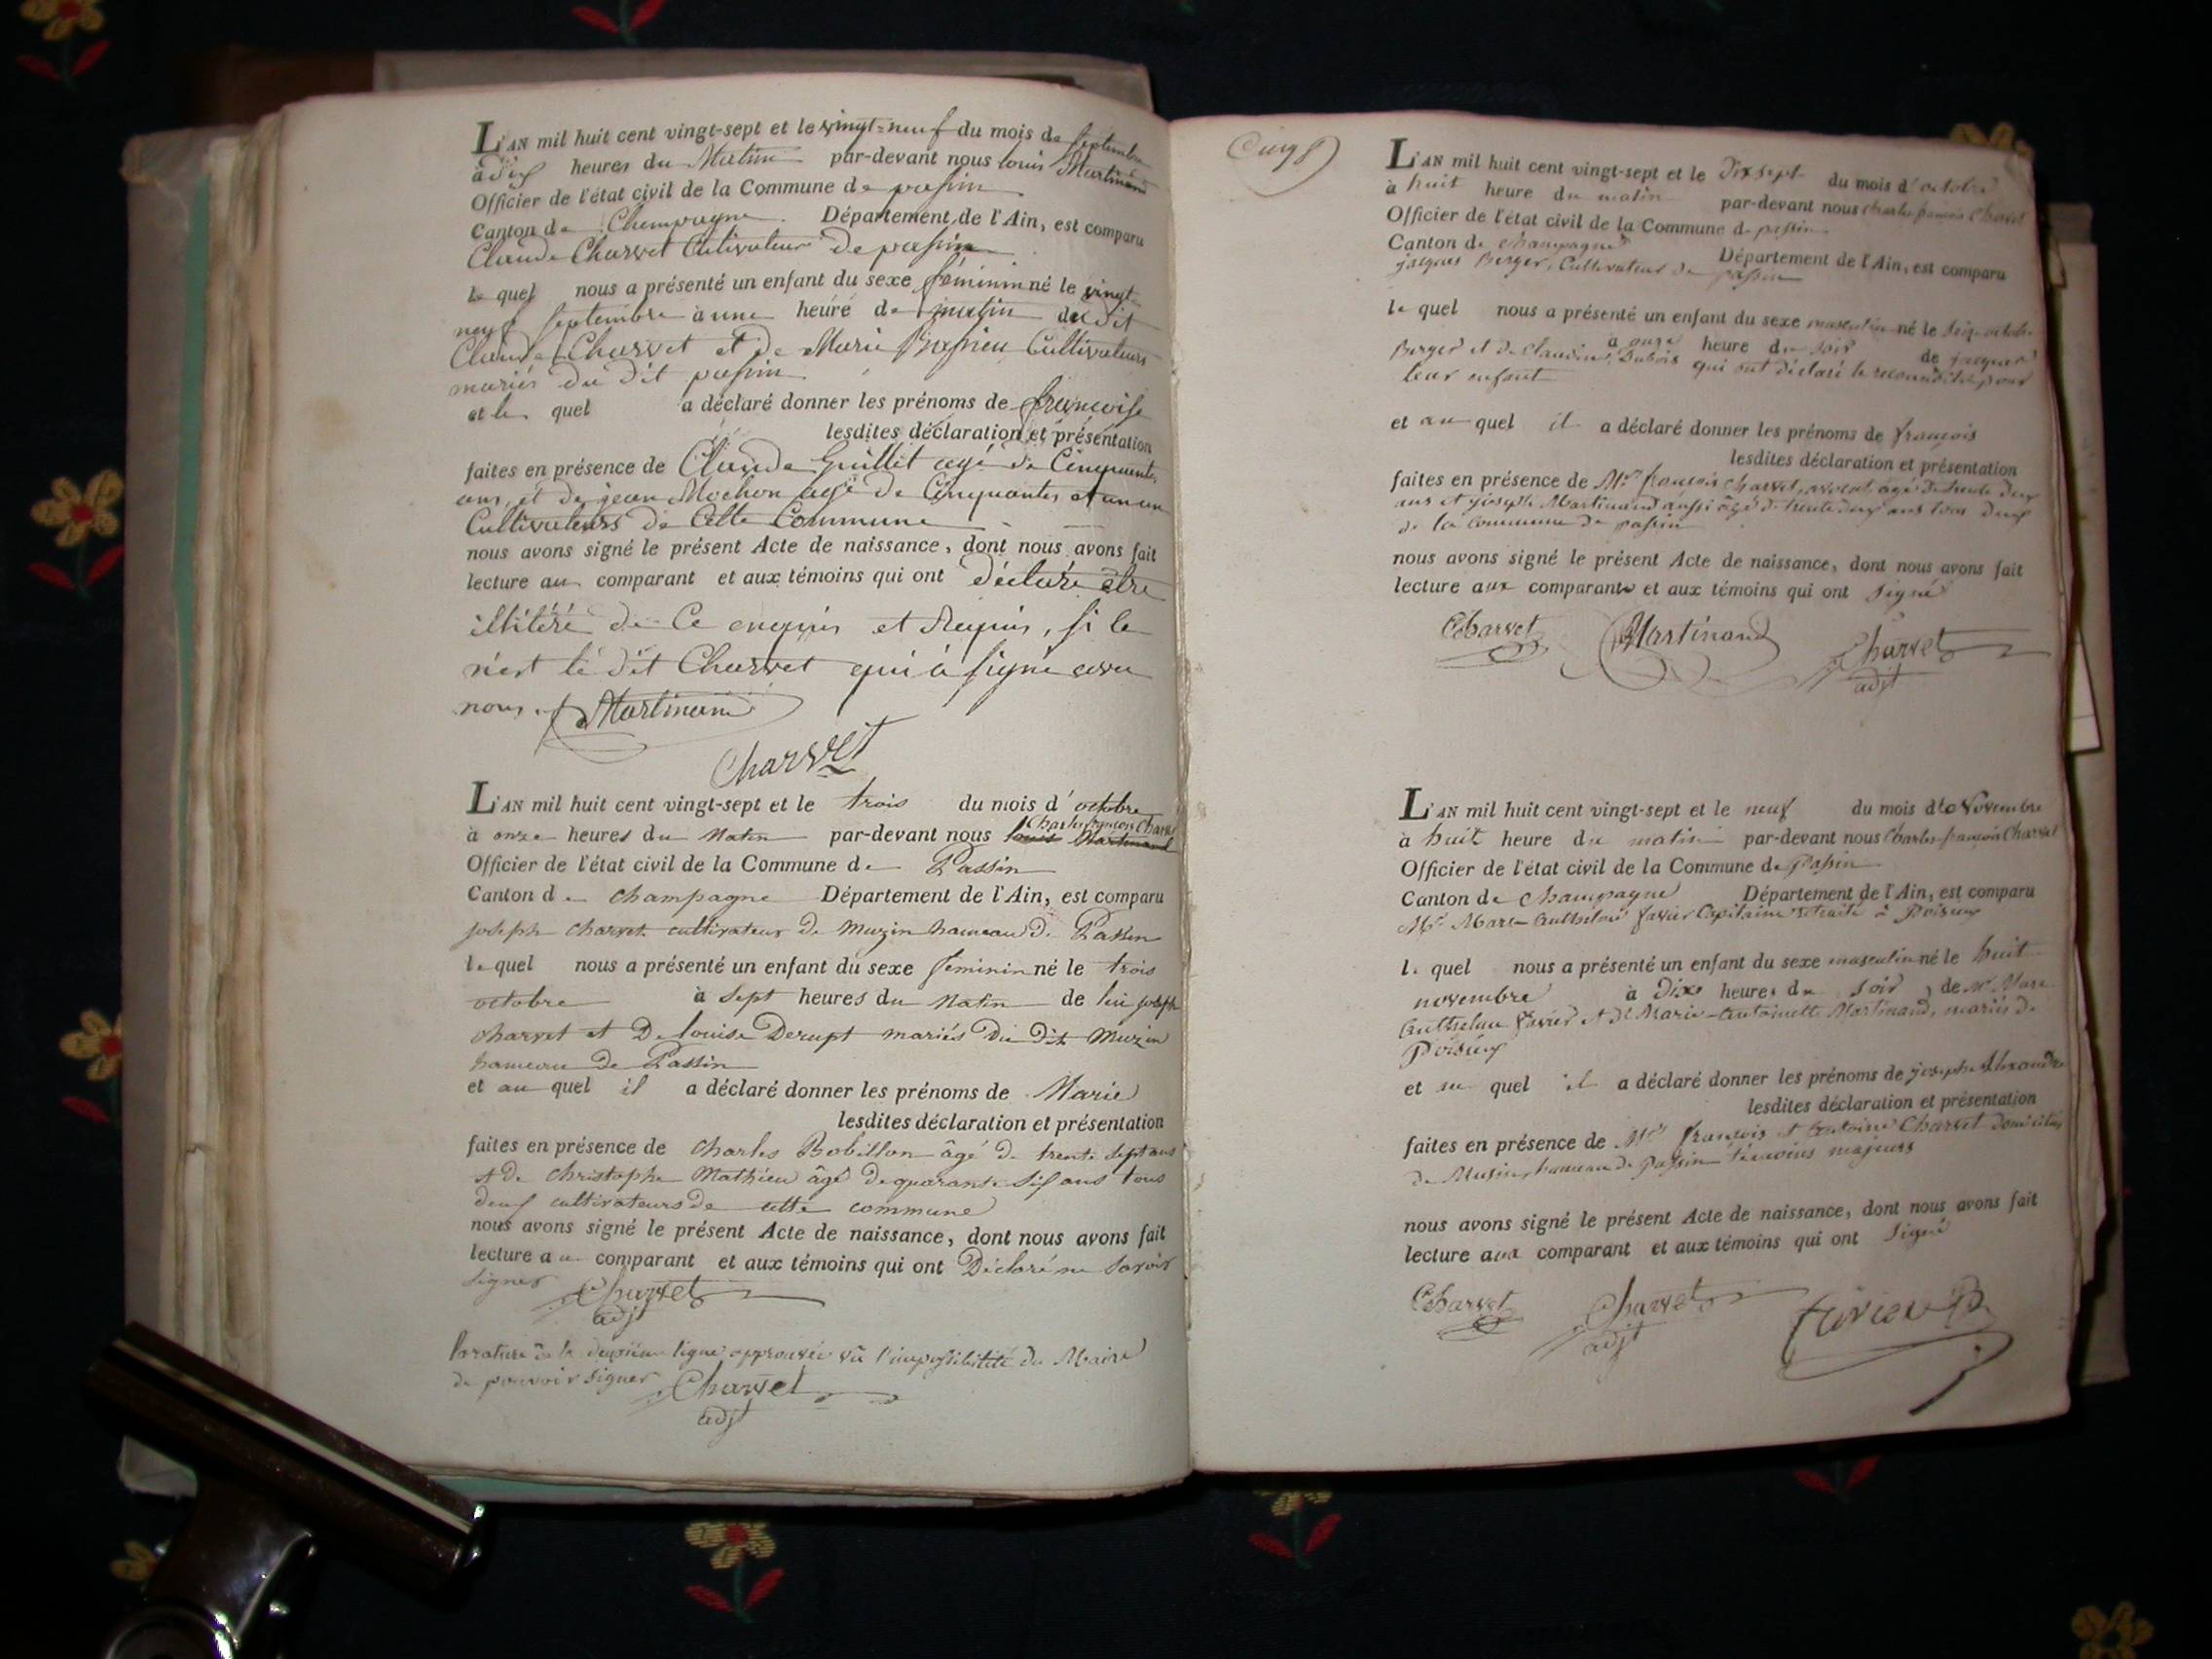 L'AN mil huit cent vingt-sept et le vingt-neuf du mois de septembre
à dix heures du Matin par-devant nous louis Martinand
Officier de l'état civil de la Commune de passin
Canton de Champagne Département de l'Ain, est comparu
Claude Charvet Cultivateur de passin
le quel nous a présenté un enfant du sexe féminin né le vingt-
neuf septembre à une heure de matin du dit
Claude Charvet et de Marie Cultivateurs
mariés du dit passin
et le quel a déclaré donner les prénoms de françoise
lesdites déclaration et présentation
faites en présence de Claude Guillet agé de Cinquante
ans, et de jean Mochon agé de Cinquante et un an
Cultivateurs de Cette Commune
nous avons signé le présent Acte de naissance, dont nous avons fait
lecture au comparant et aux témoins qui ont déclaré être
illitéré de Ce enquis et Requis, si le
n'est le dit Charvet qui à signé avec
nous. Martinand
Charvet
L'AN mil huit cent vingt-sept et le trois du mois d'octobre
Charles françois Charvet
à onze heures du Matin par-devant nous louis Martinand
Officier de l'état civil de la Commune de Passin
Canton de champagne Département de l'Ain, est comparu
joseph charvet cultivateur de muzin hameau de Passin
le quel nous a présenté un enfant du sexe feminin né le trois
octobre à sept heures du Matin de lui joseph
charvet et De louise Derupt mariés du dit Muzin
hameau de Passin
et au quel il a déclaré donner les prénoms de Marie
lesdites déclaration et présentation
faites en présence de Charles Bobillon âgé de trente sept ans
et de Christophe Mathieu âgé de quarante six ans tous
deux cultivateurs de cette commune
nous avons signé le présent Acte de naissance, dont nous avons fait
lecture au comparant et aux témoins qui ont Déclaré ne savoir
signer Charvet
adjt
la rature de la deuxième ligne approuvée vu l'impossibilité du Maire
de pouvoir signer Charvet
adjt
L'AN mil huit cent vingt-sept et le Dix sept du mois d'octobre
à huit heure du matin par-devant nous Charles françois Charvet
Officier de l'état civil de la Commune de passin
Canton de champagne Département de l'Ain, est comparu
jacques Berger, Cultivateur de passin
le quel nous a présenté un enfant du sexe masculin né le seize octobre
à onze heure du soir de jacques
Berger et de Claudine Dubois qui ont déclaré le reconnaitre pour
leur enfant
et au quel il a déclaré donner les prénoms de françois
lesdites déclaration et présentation
faites en présence de Mr françois Charvet, avocat, agé de trente deux
ans et joseph Martinand aussi âgé de trente deux ans tous deux
de la commune de passin
nous avons signé le présent Acte de naissance, dont nous avons fait
lecture aux comparants et aux témoins qui ont signé
Charvet Martinand Charvet
adjt
L'AN mil huit cent vingt-sept et le neuf du mois de Novembre
à huit heure du matin par-devant nous Charles françois Charvet
Officier de l'état civil de la Commune de Passin
Canton de Champagne Département de l'Ain, est comparu
Mr Marc Anthelme Favier Capitaine retraité à Poisieux
le quel nous a présenté un enfant du sexe masculin né le huit
novembre à Dix heures du soir, de Mr Marc
Anthelme Favier et de Marie-Antoinette Martinand, mariés de
Poisieux
et au quel il a déclaré donner les prénoms de joseph Alexandre
lesdites déclaration et présentation
faites en présence de Mrs françois et Antoine Charvet domiciliés
de Musin, hameau de Passin témoins majeurs
nous avons signé le présent Acte de naissance, dont nous avons fait
lecture aux comparant et aux témoins qui ont signé
Charvet Charvet
adjt